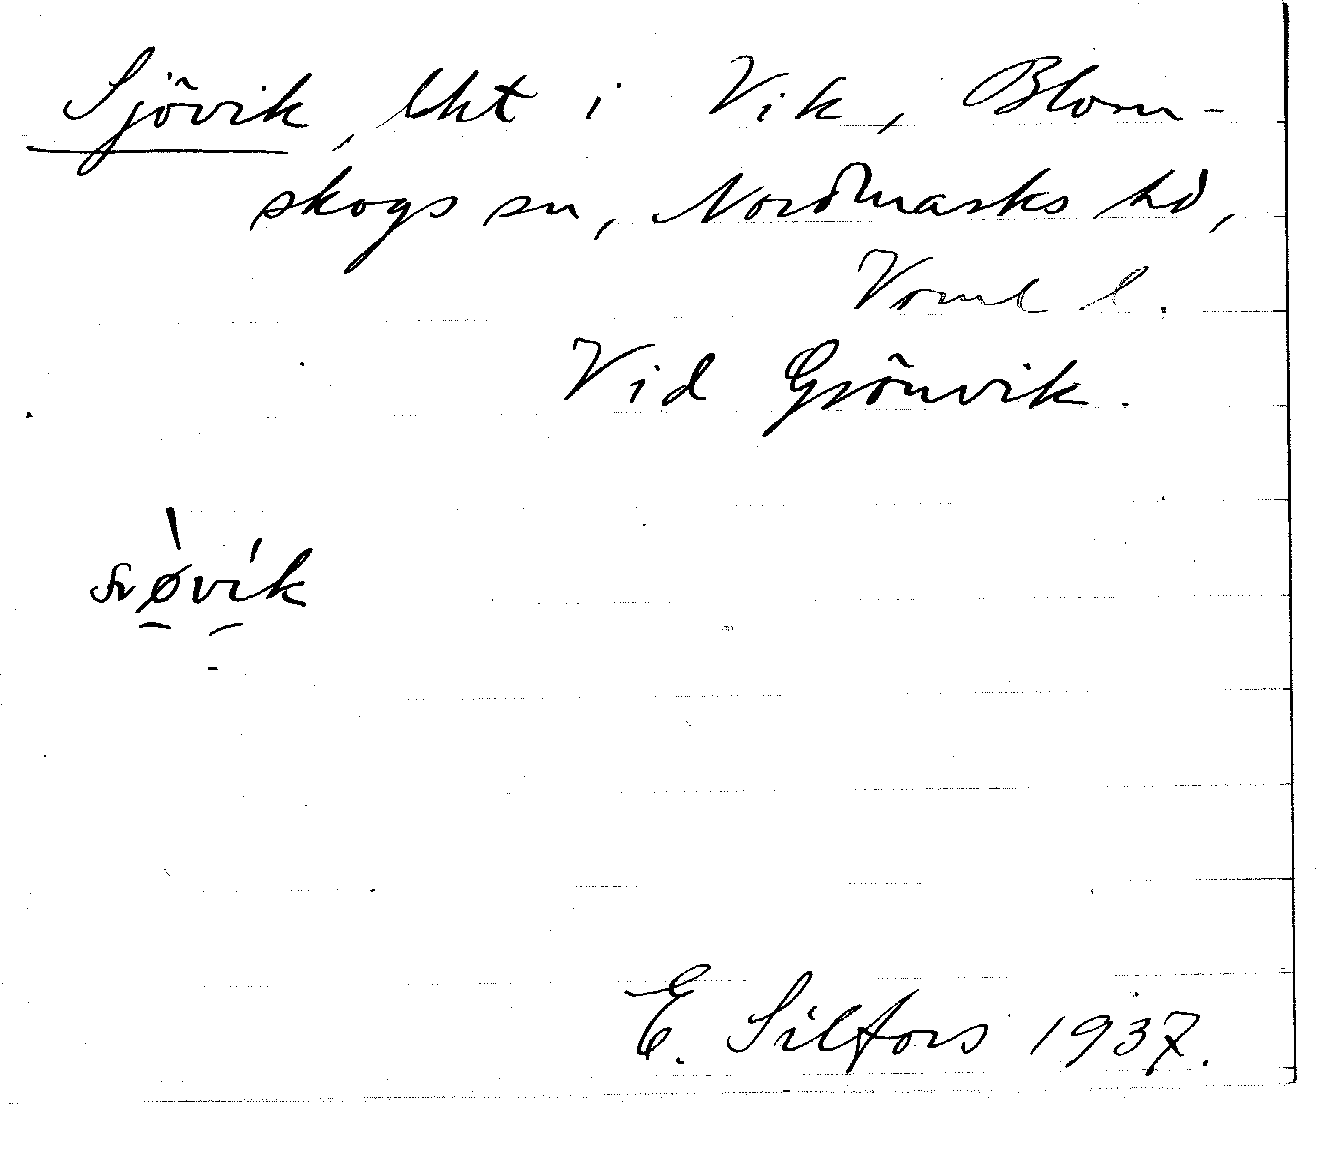 Sjövik, lht i Vik, Blom-
skogs sn, Nordmarks hd,
Vrml l.
Vid Grönvik.
E. Silfors 1937.